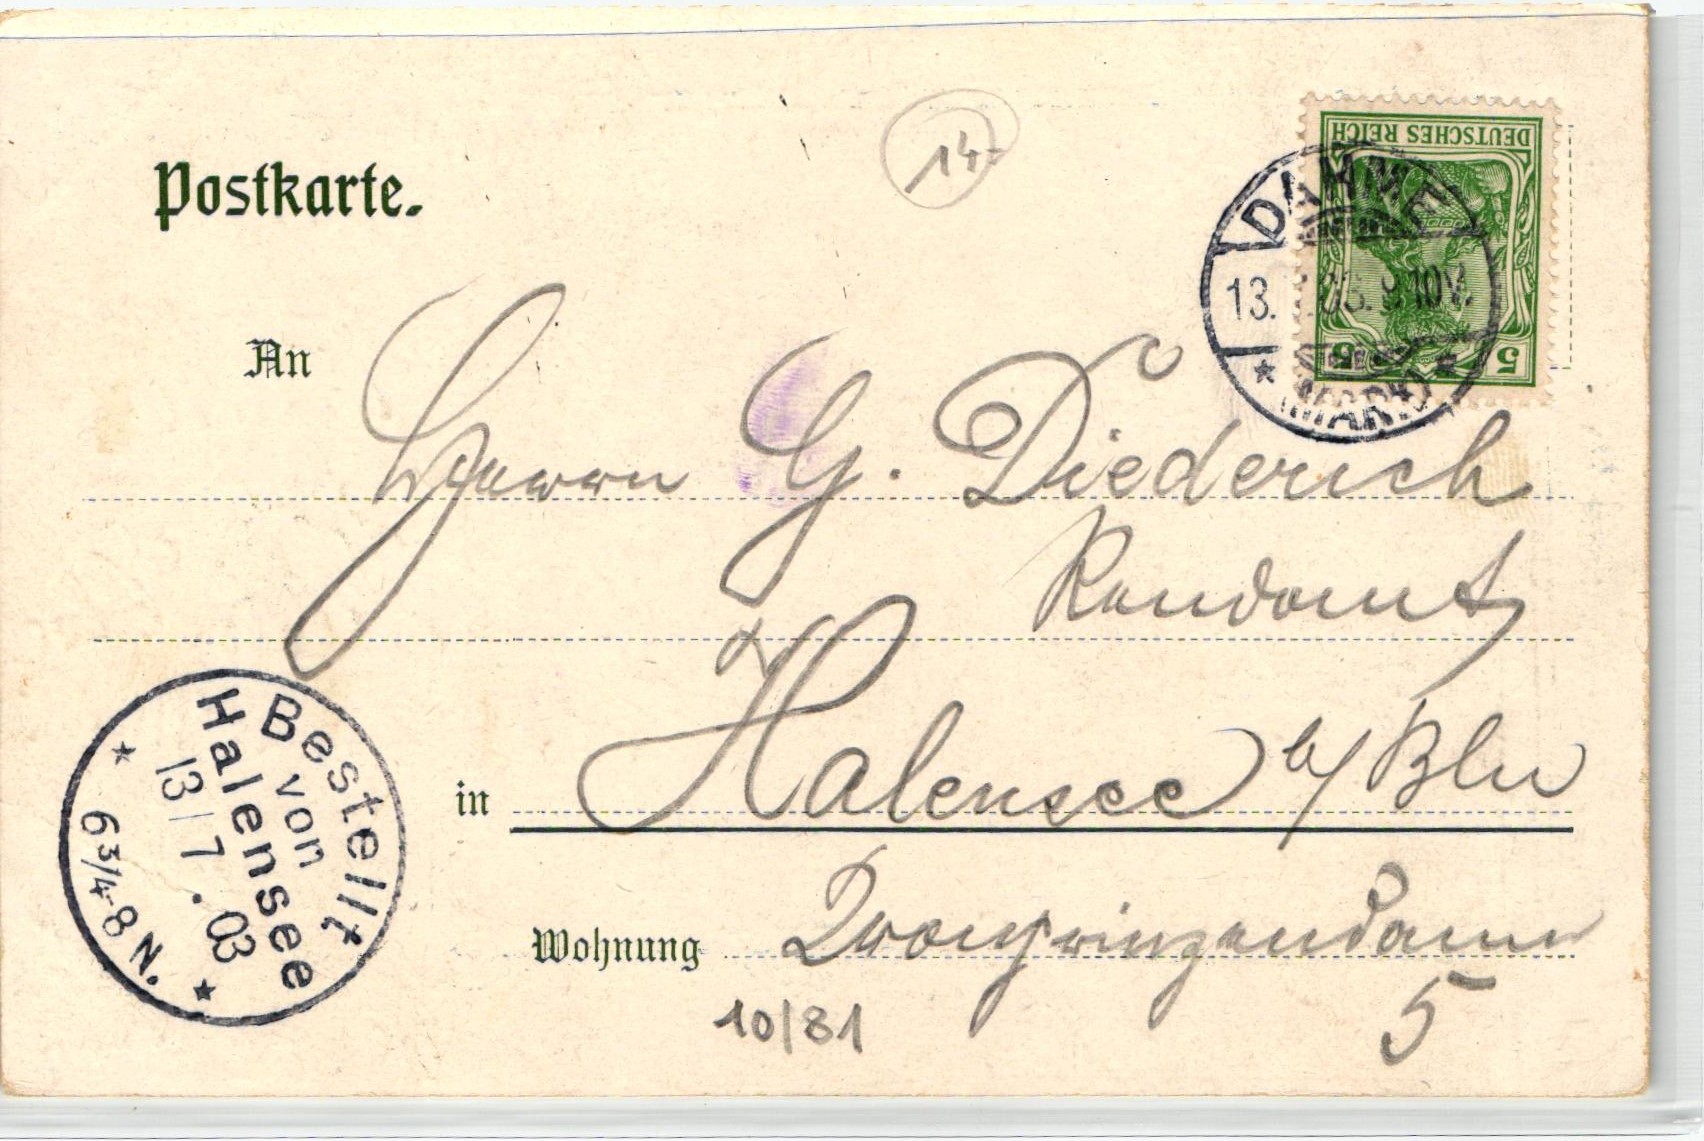 14-
Postkarte.
DEUTSCHES REICH
5 5
DAHME
13. 7.03. 9-10V.
* (MARK) *
An
Herrn G. Diederich
Rendamt
in Halensee b/ Bln
Bestellt
von
Halensee
13/7.03
* 6 3/4-8 N. *
Wohnung
5
10/81